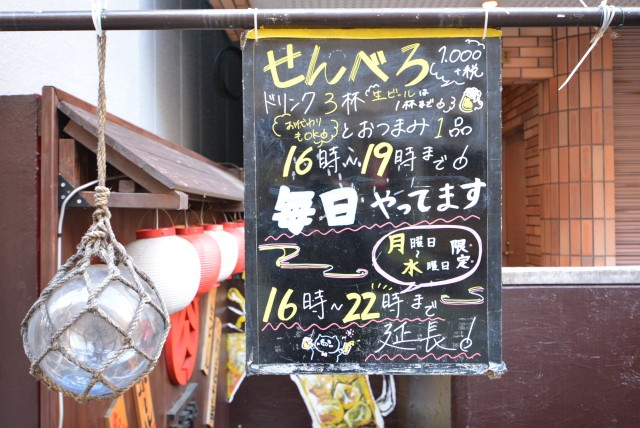 せんべろ 1.000+税
ドリンク3杯 生ビールは1杯まで
おかわりもOK とおつまみ1品
16時〜19時まで
毎日やってます
月曜日〜水曜日 限定
16時〜22時まで
延長